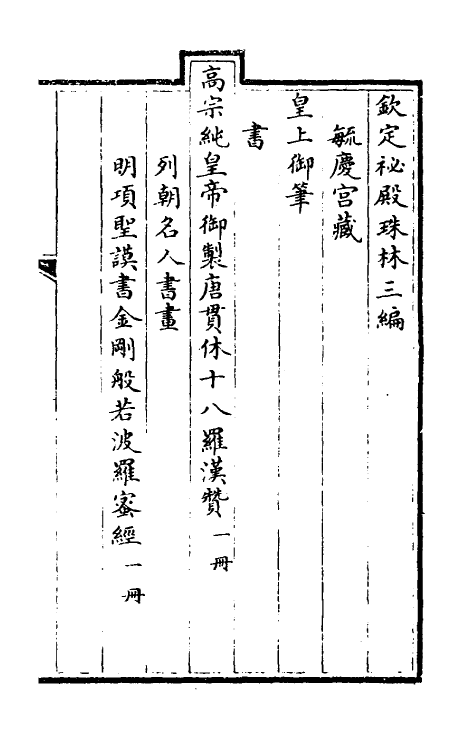 欽定祕殿珠林三編
毓慶宮藏
皇上御筆
書
高宗純皇帝御製唐貫休十八羅漢贊一冊
列朝名人書畫
明項聖謨書金剛般若波羅蜜經一冊